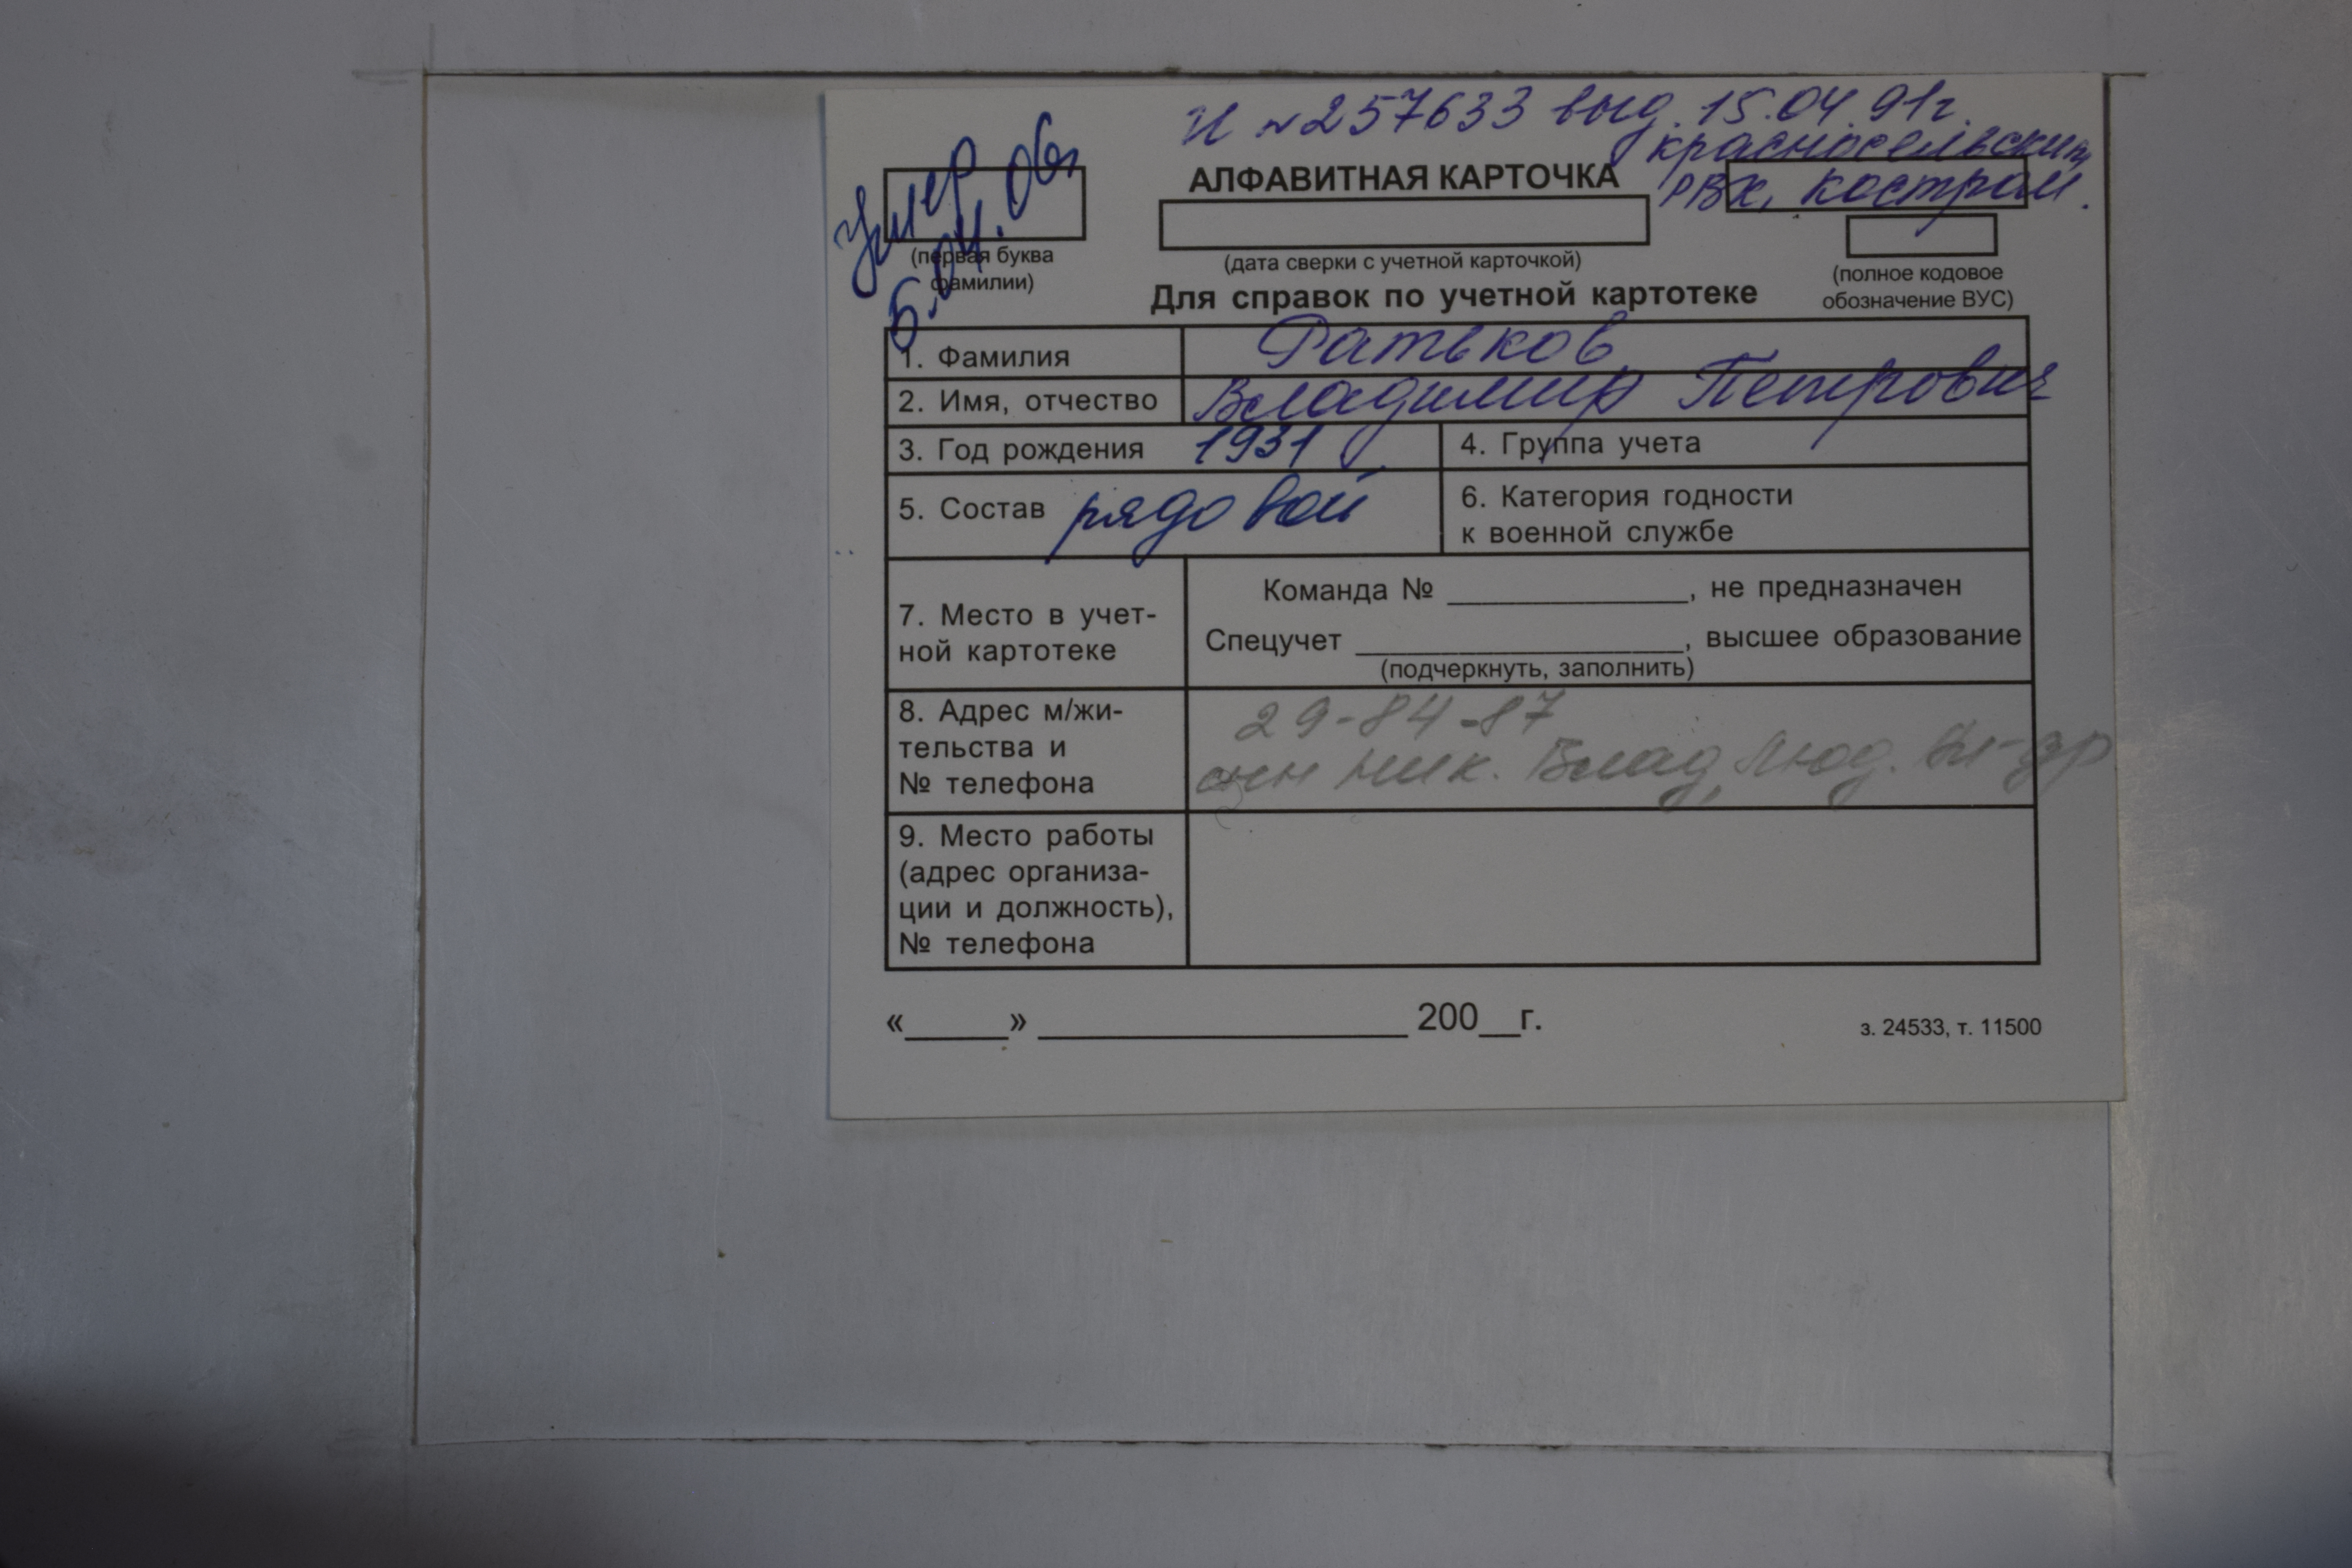 И №257633 выд. 15.04.91г.
красносельским
РВК, костром.
умер
6.04.06г
АЛФАВИТНАЯ КАРТОЧКА
(первая буква
фамилии)
(дата сверки с учетной карточкой)
(полное кодовое
обозначение ВУС)
Для справок по учетной картотеке
1. Фамилия Ратьков
2. Имя, отчество Владимир Петрович
3. Год рождения 1931 4. Группа учета
5. Состав рядовой 6. Категория годности
к военной службе
7. Место в учет-
ной картотеке
Команда № ______________, не предназначен
Спецучет ___________________, высшее образование
(подчеркнуть, заполнить)
8. Адрес м/жи-
тельства и
№ телефона
29-84-87
сын Ник. Влад, Люд. Вл-др
9. Место работы
(адрес организа-
ции и должность),
№ телефона
«_____» __________________ 200__г.
з. 24533, т. 11500